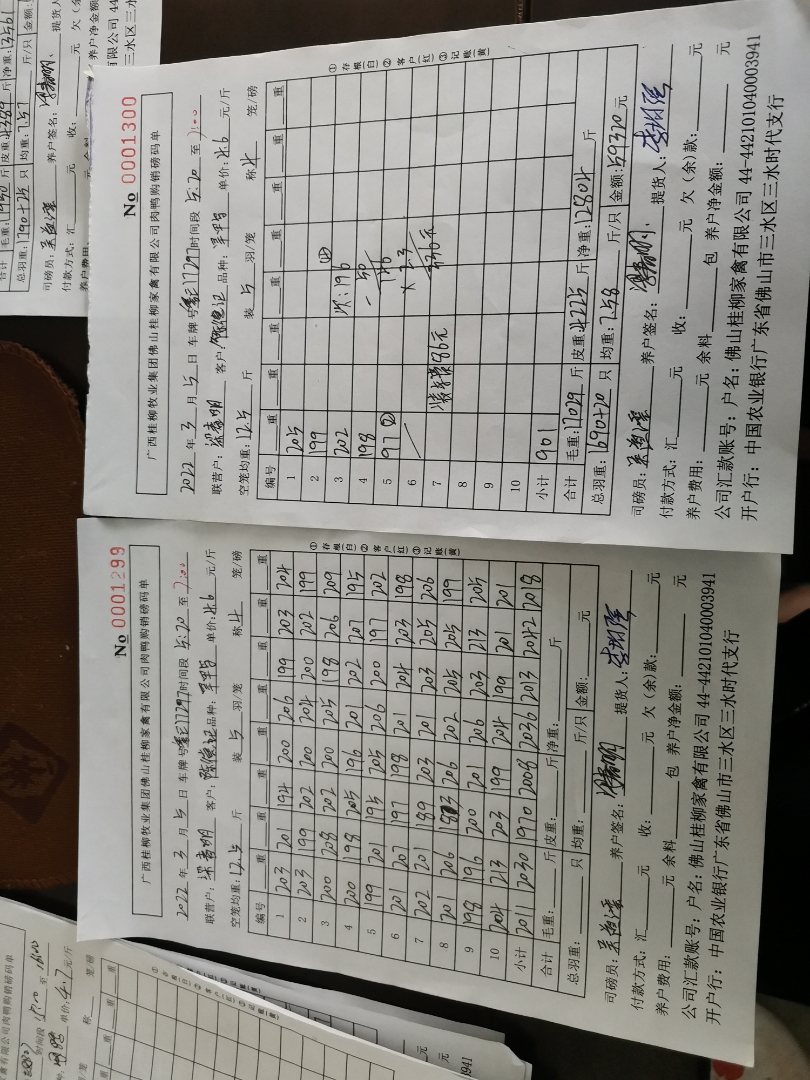 广西桂柳牧业集团佛山桂柳家禽有限公司肉鸭购销磅码单
No 0001300
2022 年 3 月 5 日 车牌号 17297 时间段 5:20 至 7:00
联营户: 梁春明 客户: 陈德记 品种: 单价: 4.6 元/斤
空笼均重: 12.5 斤 装 5 羽/笼 称 4 笼/磅
编号 重 重 重 重 重 重 重 重
1 205
2 199
3 202 次: 196
4 198 - 50
5 97 ② 146
6 × 2.3
7 装车费86元 336元
8
9
10
小计 901
合计 毛重: 17029 斤 皮重: 4225 斤 净重: 12804 斤
总羽重: 1690+20 只 均重: 7.58 斤/只 金额: 59320 元
司磅员: 养户签名: 提货人:
付款方式: 汇 元 收: 元 欠(余)款: 元
养户费用: 元 余料 包 养户净金额: 元
公司汇款账号: 户名: 佛山桂柳家禽有限公司 44-442101040003941
开户行: 中国农业银行广东省佛山市三水区三水时代支行
①存根(白) ②客户(红) ③记账(黄)
广西桂柳牧业集团佛山桂柳家禽有限公司肉鸭购销磅码单
No 0001299
2022 年 3 月 5 日 车牌号 17297 时间段 5:20 至 7:00
联营户: 梁春明 客户: 陈德记 品种: 单价: 4.6 元/斤
空笼均重: 12.5 斤 装 5 羽/笼 称 4 笼/磅
编号 重 重 重 重 重 重 重 重
1 203 201 194 200 206 199 203 204
2 203 199 202 200 204 200 202 199
3 200 208 202 200 205 198 206 209
4 200 198 205 196 201 202 207 195
5 199 201 195 205 206 200 197 202
6 201 207 197 198 201 204 203 198
7 202 201 189 203 201 203 205 206
8 201 206 183 206 202 205 205 199
9 198 196 200 201 206 203 213 205
10 204 213 203 199 204 199 201 201
小计 2011 2030 1970 2008 2036 2013 2042 2018
合计 毛重: 斤 皮重: 斤 净重: 斤
总羽重: 只 均重: 斤/只 金额: 元
司磅员: 养户签名: 提货人:
付款方式: 汇 元 收: 元 欠(余)款: 元
养户费用: 元 余料 包 养户净金额: 元
公司汇款账号: 户名: 佛山桂柳家禽有限公司 44-442101040003941
开户行: 中国农业银行广东省佛山市三水区三水时代支行
①存根(白) ②客户(红) ③记账(黄)